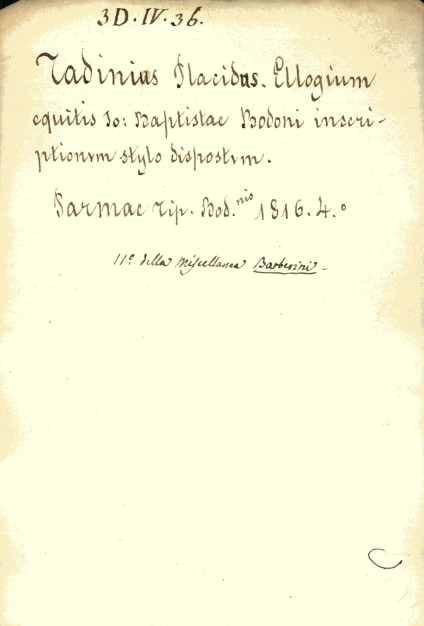 3D. IV. 36.
Tadinius Placidus. Ellogium
equitis Jo: Baptistae Bodoni inscri-
ptionvm stylo dispostvm.
Parmae Tip. Bod.nis 1816. 4.°
11.° della Miscellanea Barberini -